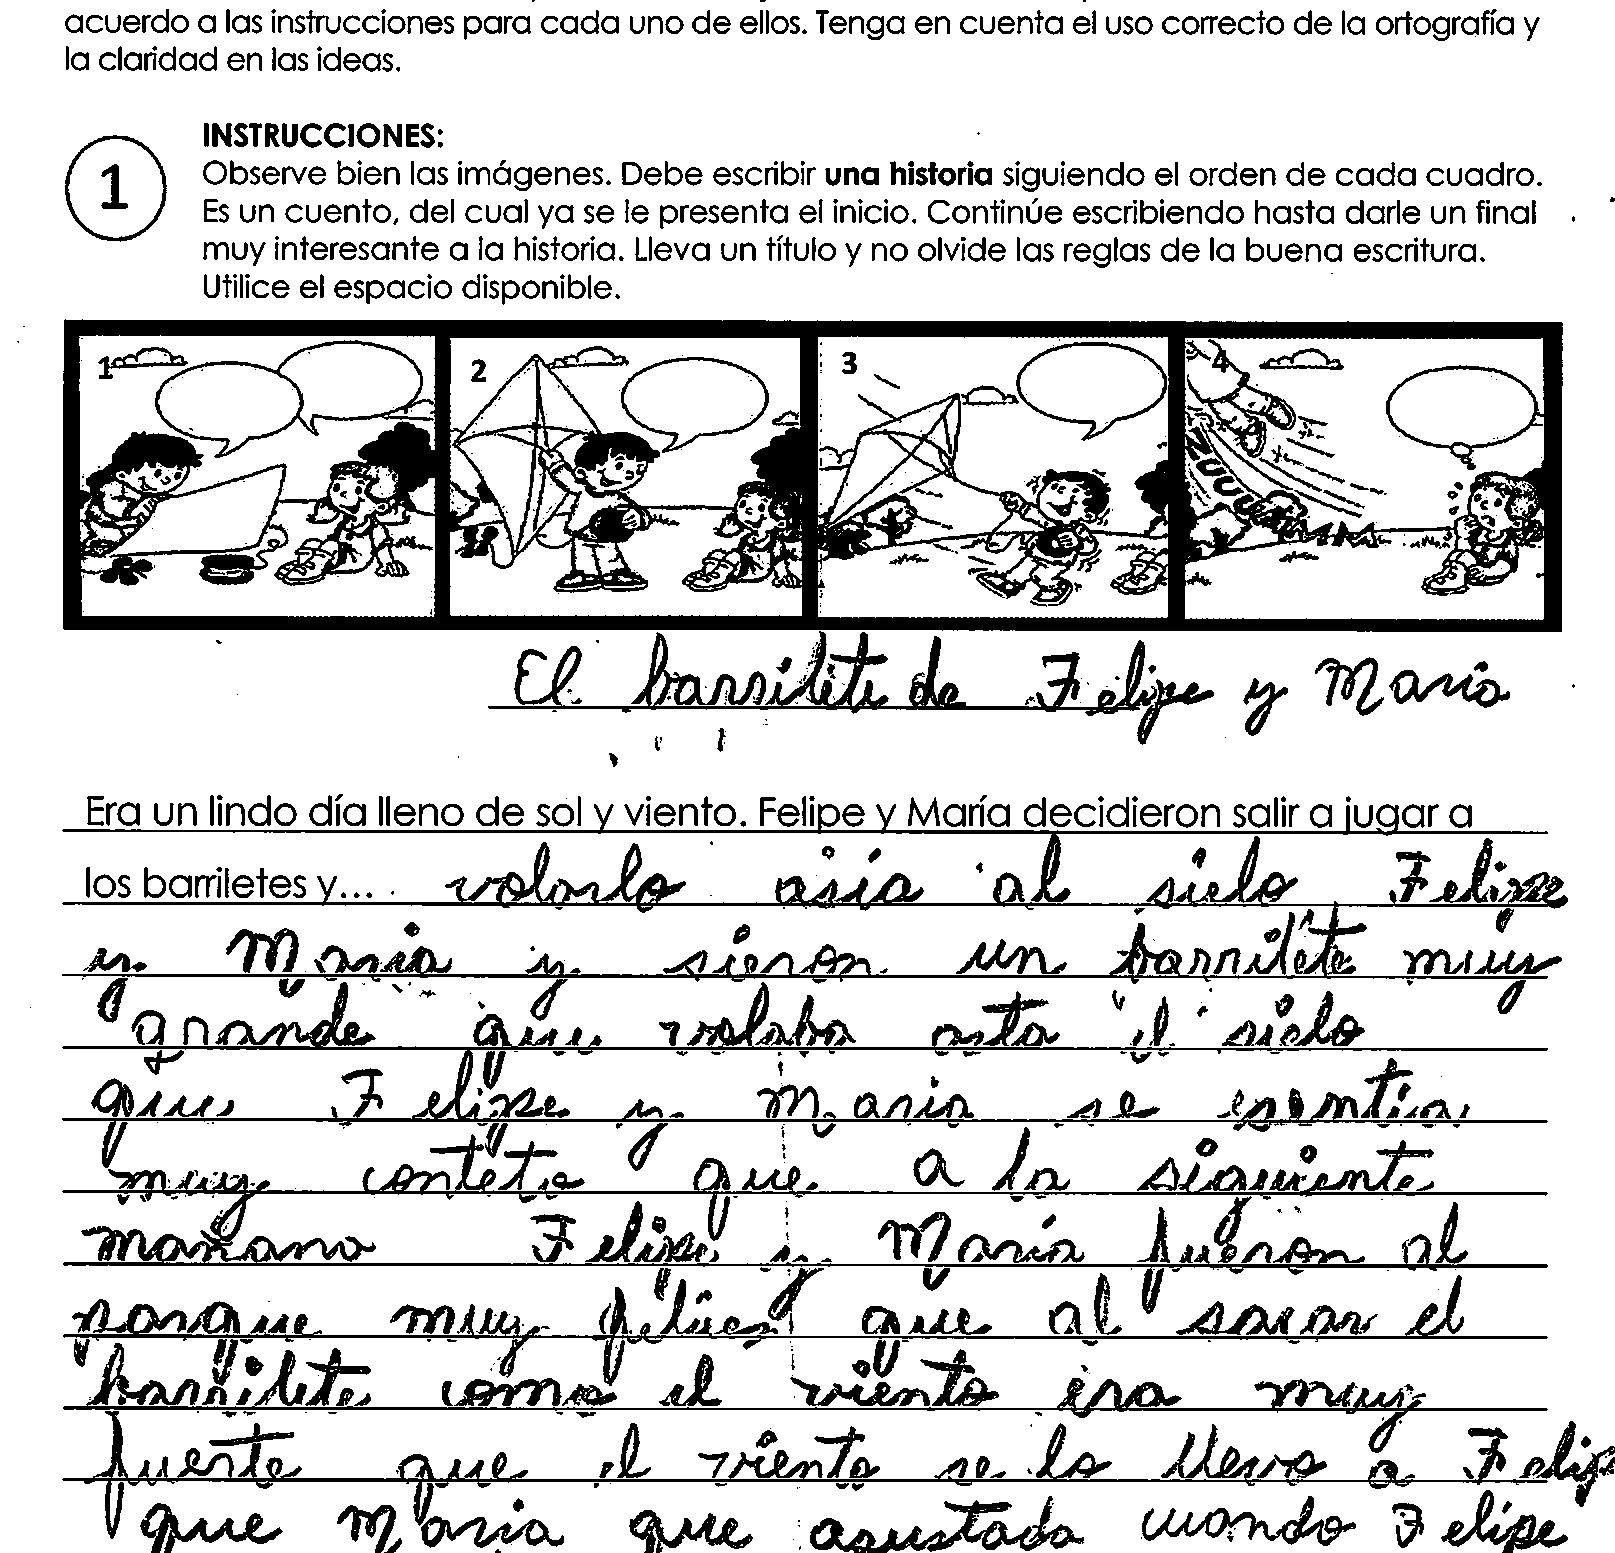 acuerdo a las instrucciones para cada uno de ellos. Tenga en cuenta el uso correcto de la ortografía y
la claridad en las ideas.
1
INSTRUCCIONES:
Observe bien las imágenes. Debe escribir una historia siguiendo el orden de cada cuadro.
Es un cuento, del cual ya se le presenta el inicio. Continúe escribiendo hasta darle un final
muy interesante a la historia. Lleva un título y no olvide las reglas de la buena escritura.
Utilice el espacio disponible.
1 2 3 4
El barrilete de Felipe y María
Era un lindo día lleno de sol y viento. Felipe y María decidieron salir a jugar a
los barriletes y... volarlo asía al sielo Felipe
y Maria y sieron un barrilete muy
grande que volaba asta el sielo
que Felipe y Maria se esentia
muy conteto que a la siguiente
mañana Felipe y María fueron al
parque muy felices que al sacar el
barrilete como el viento era muy
fuerte que el viento se lo llevo a Felipe
que Maria que asustada cuando Felipe